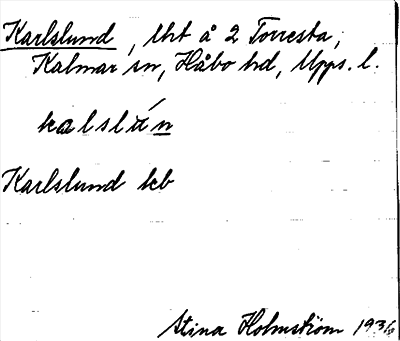 Karlslund, lht å 2 Torresta,
Kalmar sn, Håbo hd, Upps. l.
kalslún
Karlslund kb
Stina Holmström 1936